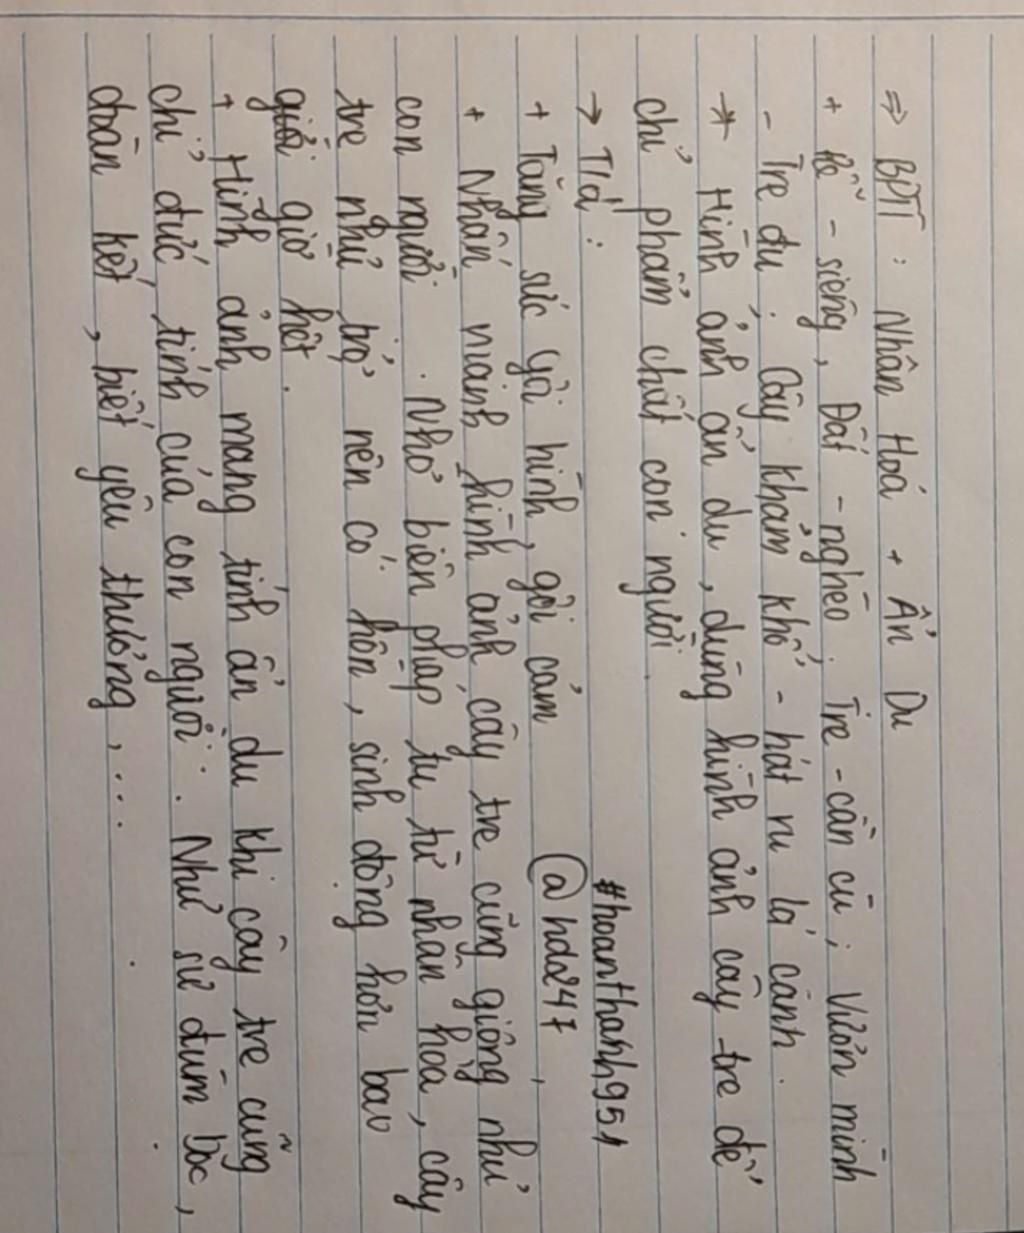 ⇒ BPTT : Nhân Hoá + Ẩn Dụ
+ Rễ - siêng, Đất - nghèo; Tre - cần cù; Vươn mình
- Tre đu; Cây khảm khổ - hát ru lá cành.
* Hình ảnh ẩn dụ, dùng hình ảnh cây tre để
chỉ phẩm chất con người.
→ T/d :
#hoanthanh951
+ Tăng sức gợi hình, gợi cảm
@hda247
+ Nhấn mạnh hình ảnh cây tre cũng giống như
con người. Nhờ biện pháp tu từ nhân hoá, cây
tre như trở nên có hồn, sinh động hơn bao
giờ giờ hết.
+ Hình ảnh mang tính ẩn dụ khi cây tre cũng
chỉ đức tính của con người. Như sự đùm bọc,
đoàn kết, biết yêu thương,....